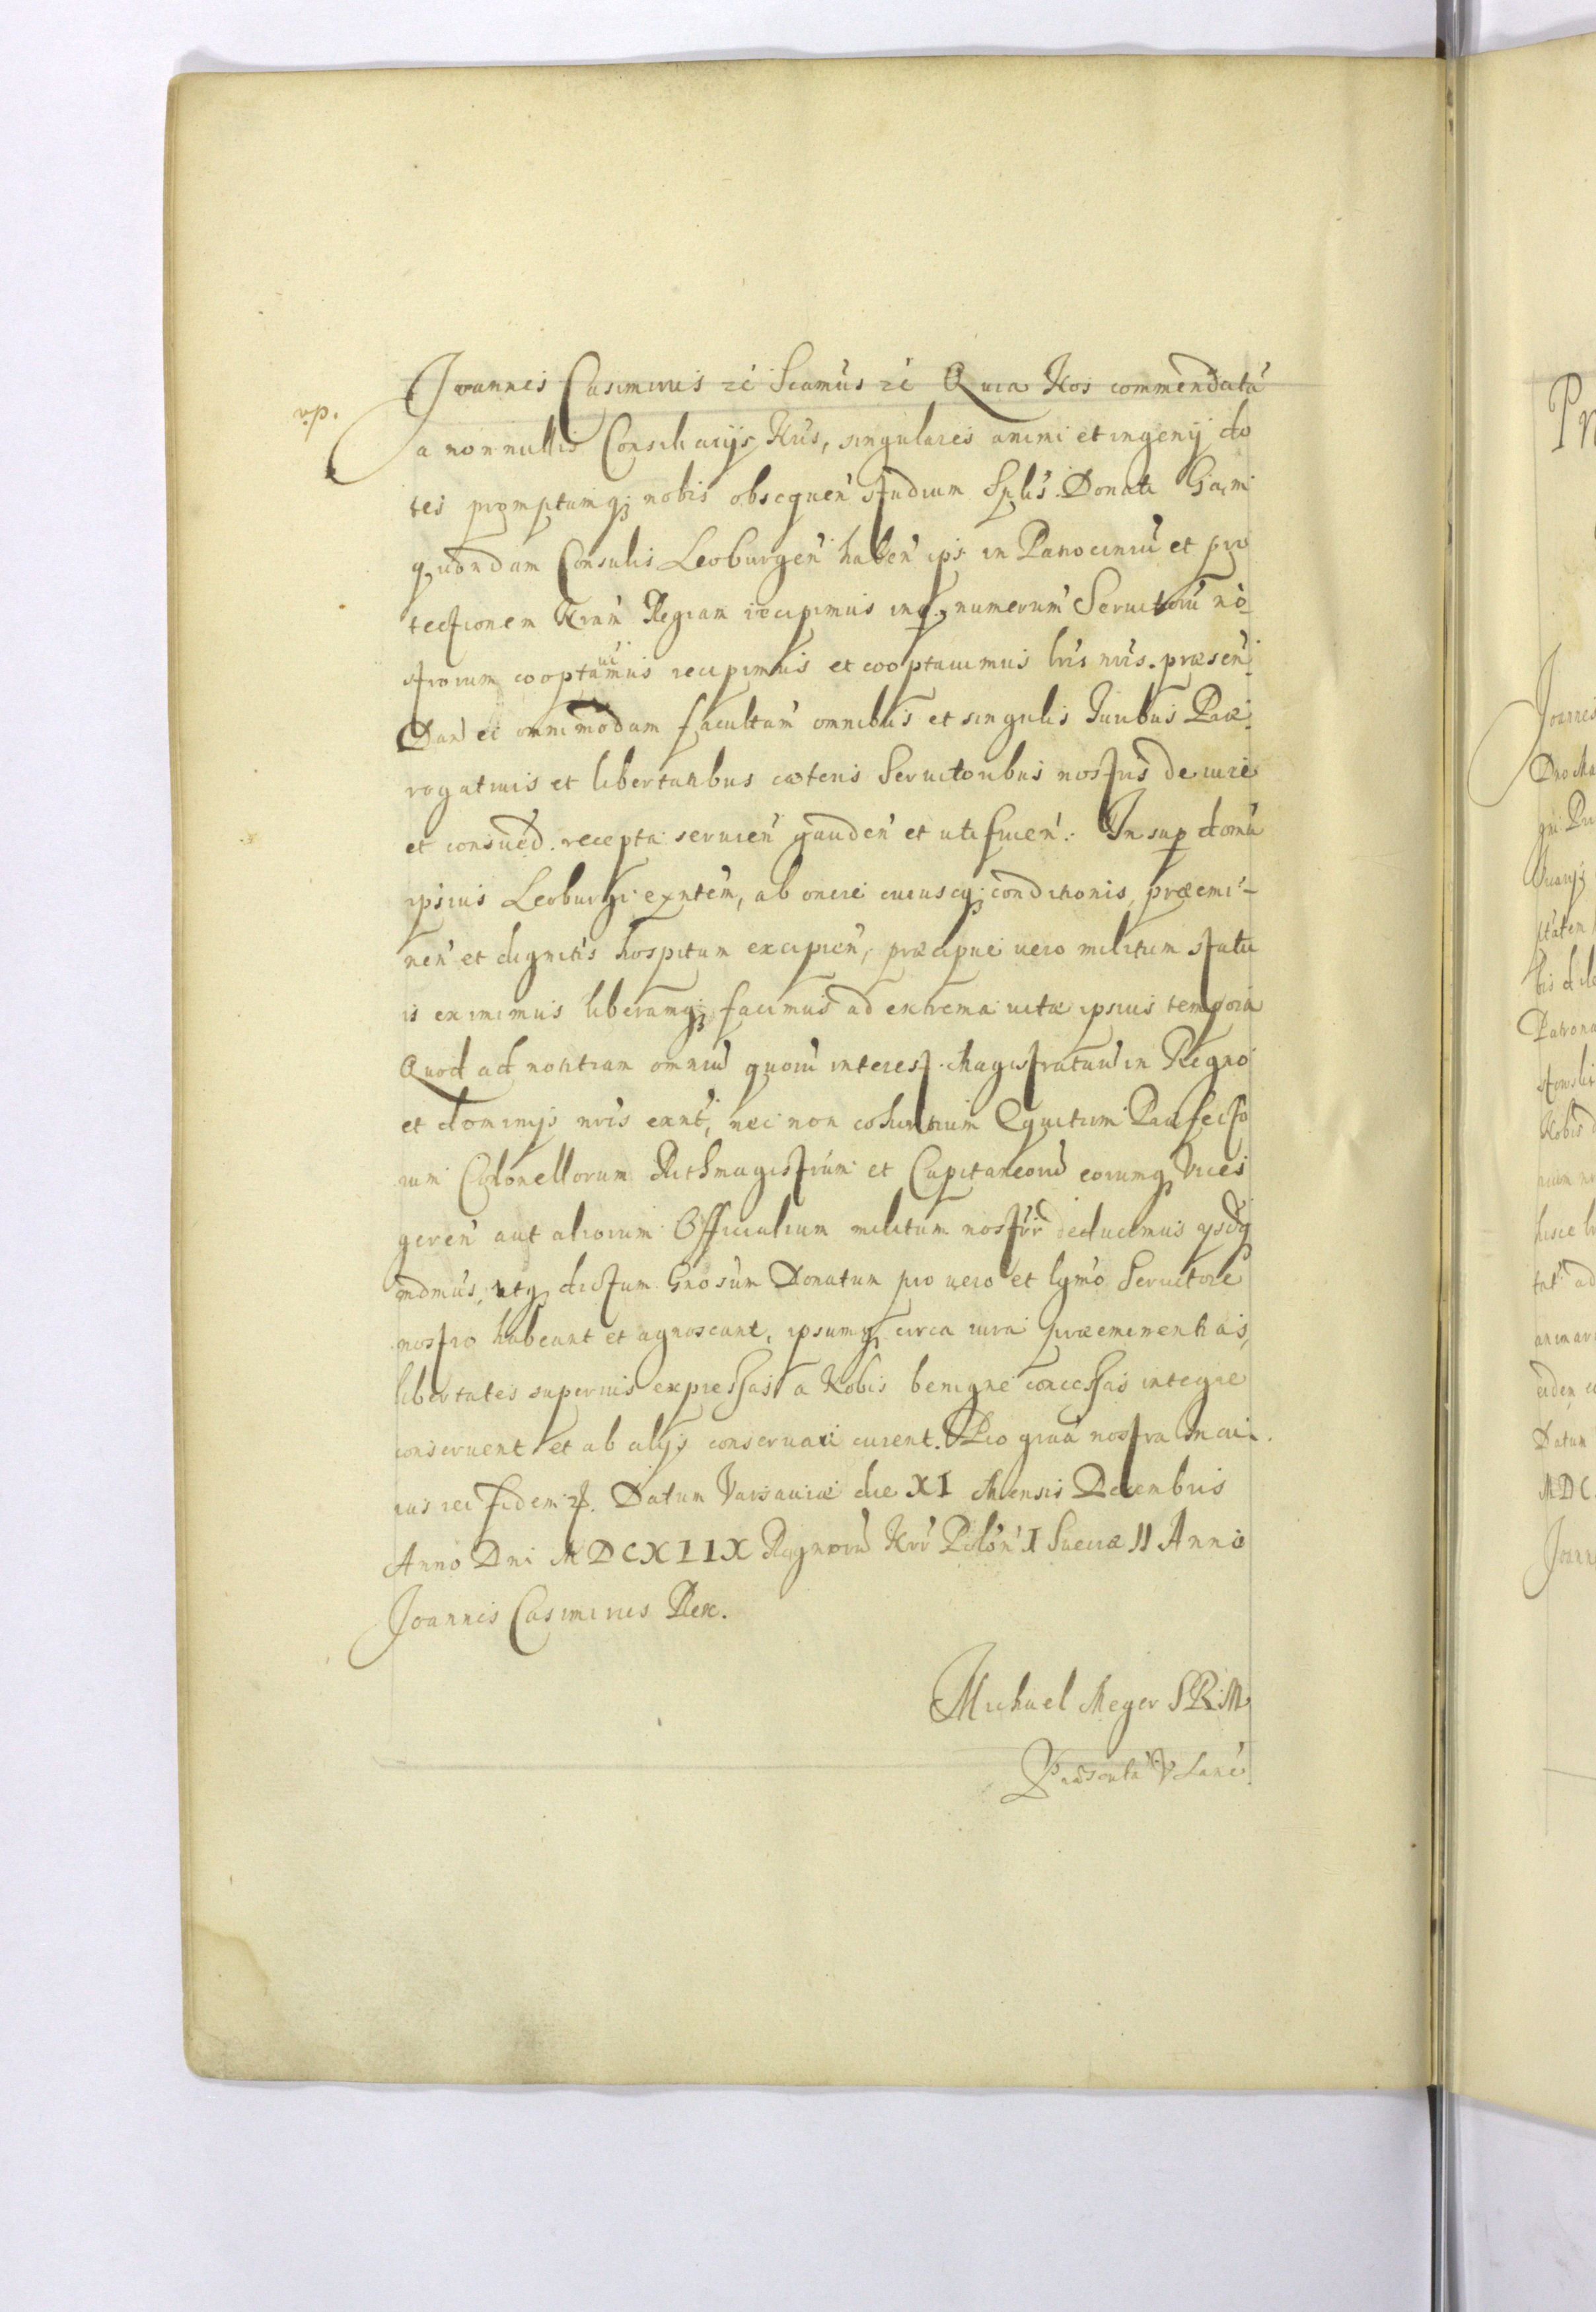 Joannes Casimirus zc Scamus zc Quia Nos commendatã
v.p.
a nonnullis Consiliarijs Nris, singulares animi et ingenij do
tes promptumq; nobis obsequen studium Splis Donati
quondam Consulis Leoburgen haben ips in Patrocinium et pro
tectionem Nram Regiam recipimus inq; numerum Seruitorũ no
strorum cooptamus recipimus et cooptauimus lris nris. præsen
Dan ei omnimodam facultam omnibus et singulis Juribus Præ
rogatiuis et libertatibus cæteris Seruitoribus nostris de iure
et consued. recepta seruien gauden et uti fruen. Insup domũ
ipsius Leoburgi exntem, ab onere cuiuscq; conditionis, præemi-
nen et dignitis hospitum excipien, præcipue uero militum statu
is eximimus liberamq; facimus ad extrema uitæ ipsius tempora
Quod ad notitiam omniũ quorũ interest. Magistratuũ in Regno
et dominijs nris exnt, nec non cohortium Equitum Præfecto
rum Colonellorum Rithmagistrũm et Capitaneorũ eorumq; Vices
geren aut aliorum Officialium militum nostror deducimus ysdq;
mdmus, utq; dictum Gnosum Donatum pro uero et lgmo Seruitore
nostro habeant et agnoscant, ipsumq; circa iura præeminentias,
libertates superius expressas a Nobis benigne concessas integre
conseruent et ab alijs conseruari curent. Pro graa nostra In cui.
ius rei fidem zc. Datum Varsauiæ die XI Mensis Decembris
Anno Dni MDCXIIX Regnorũ Nrr Polon I Sueciæ II Anno
Joannes Casimirus Rex.
Michael Meyer S R M